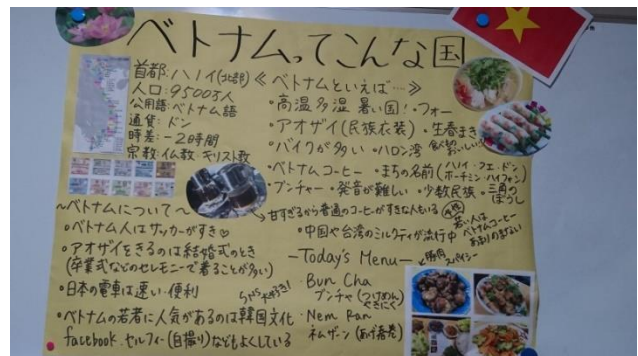 ベトナムってこんな国
首都:ハノイ(北部)
人口:9500万人
公用語:ベトナム語
通貨:ドン
時差:-2時間
宗教:仏教・キリスト教
《ベトナムといえば…》
・高温多湿 暑い国!・フォー
・アオザイ(民族衣装)・生春まき
・バイクが多い・ハロン湾
・ベトナムコーヒー ・まちの名前(ハノイ・フエ・ドン
ホーチミン・ハイフォン)
・ブンチャー・発音が難しい・少数民族・三角の
ぼうし
甘すぎるから普通のコーヒーがすきな人もいる
若い人は
ベトナムコーヒー
あまりのまない
・中国や台湾のミルクティが流行中
~ベトナムについて~
・ベトナム人はサッカーがすき♡
・アオザイをきるのは結婚式のとき
(卒業式などのセレモニーで着ることが多い)
・日本の電車は速い・便利
SNS大好き!
・ベトナムの若者に人気があるのは韓国文化
facebook.セルフィー(自撮り)などもよくしている
-Today's Menu-
豚肉
スパイシー
・Bun Cha
ブンチャ(つけめん
やきにく
・Nem Ran
ネムザーン(あげ春巻)